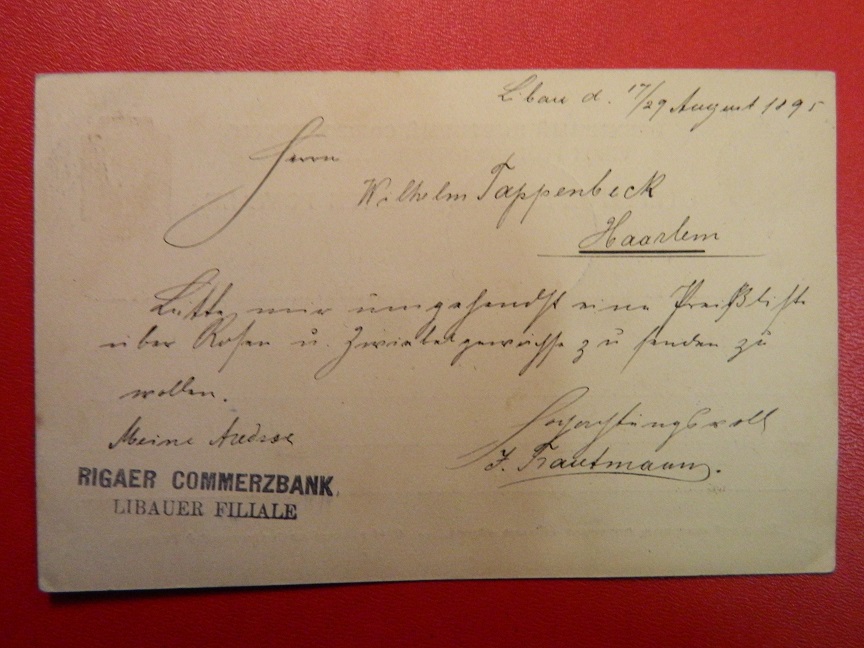 Libau d. 17/29 August 1895
Herrn
Wilhelm Tappenbeck
Haarlem
Bitte mir umgehendst eine Preißliste
über Rosen u. Zwiebelgewächse zu senden zu
wollen.
Hochachtungsvoll
Meine Adresse
J. Trautmann.
RIGAER COMMERZBANK,
LIBAUER FILIALE